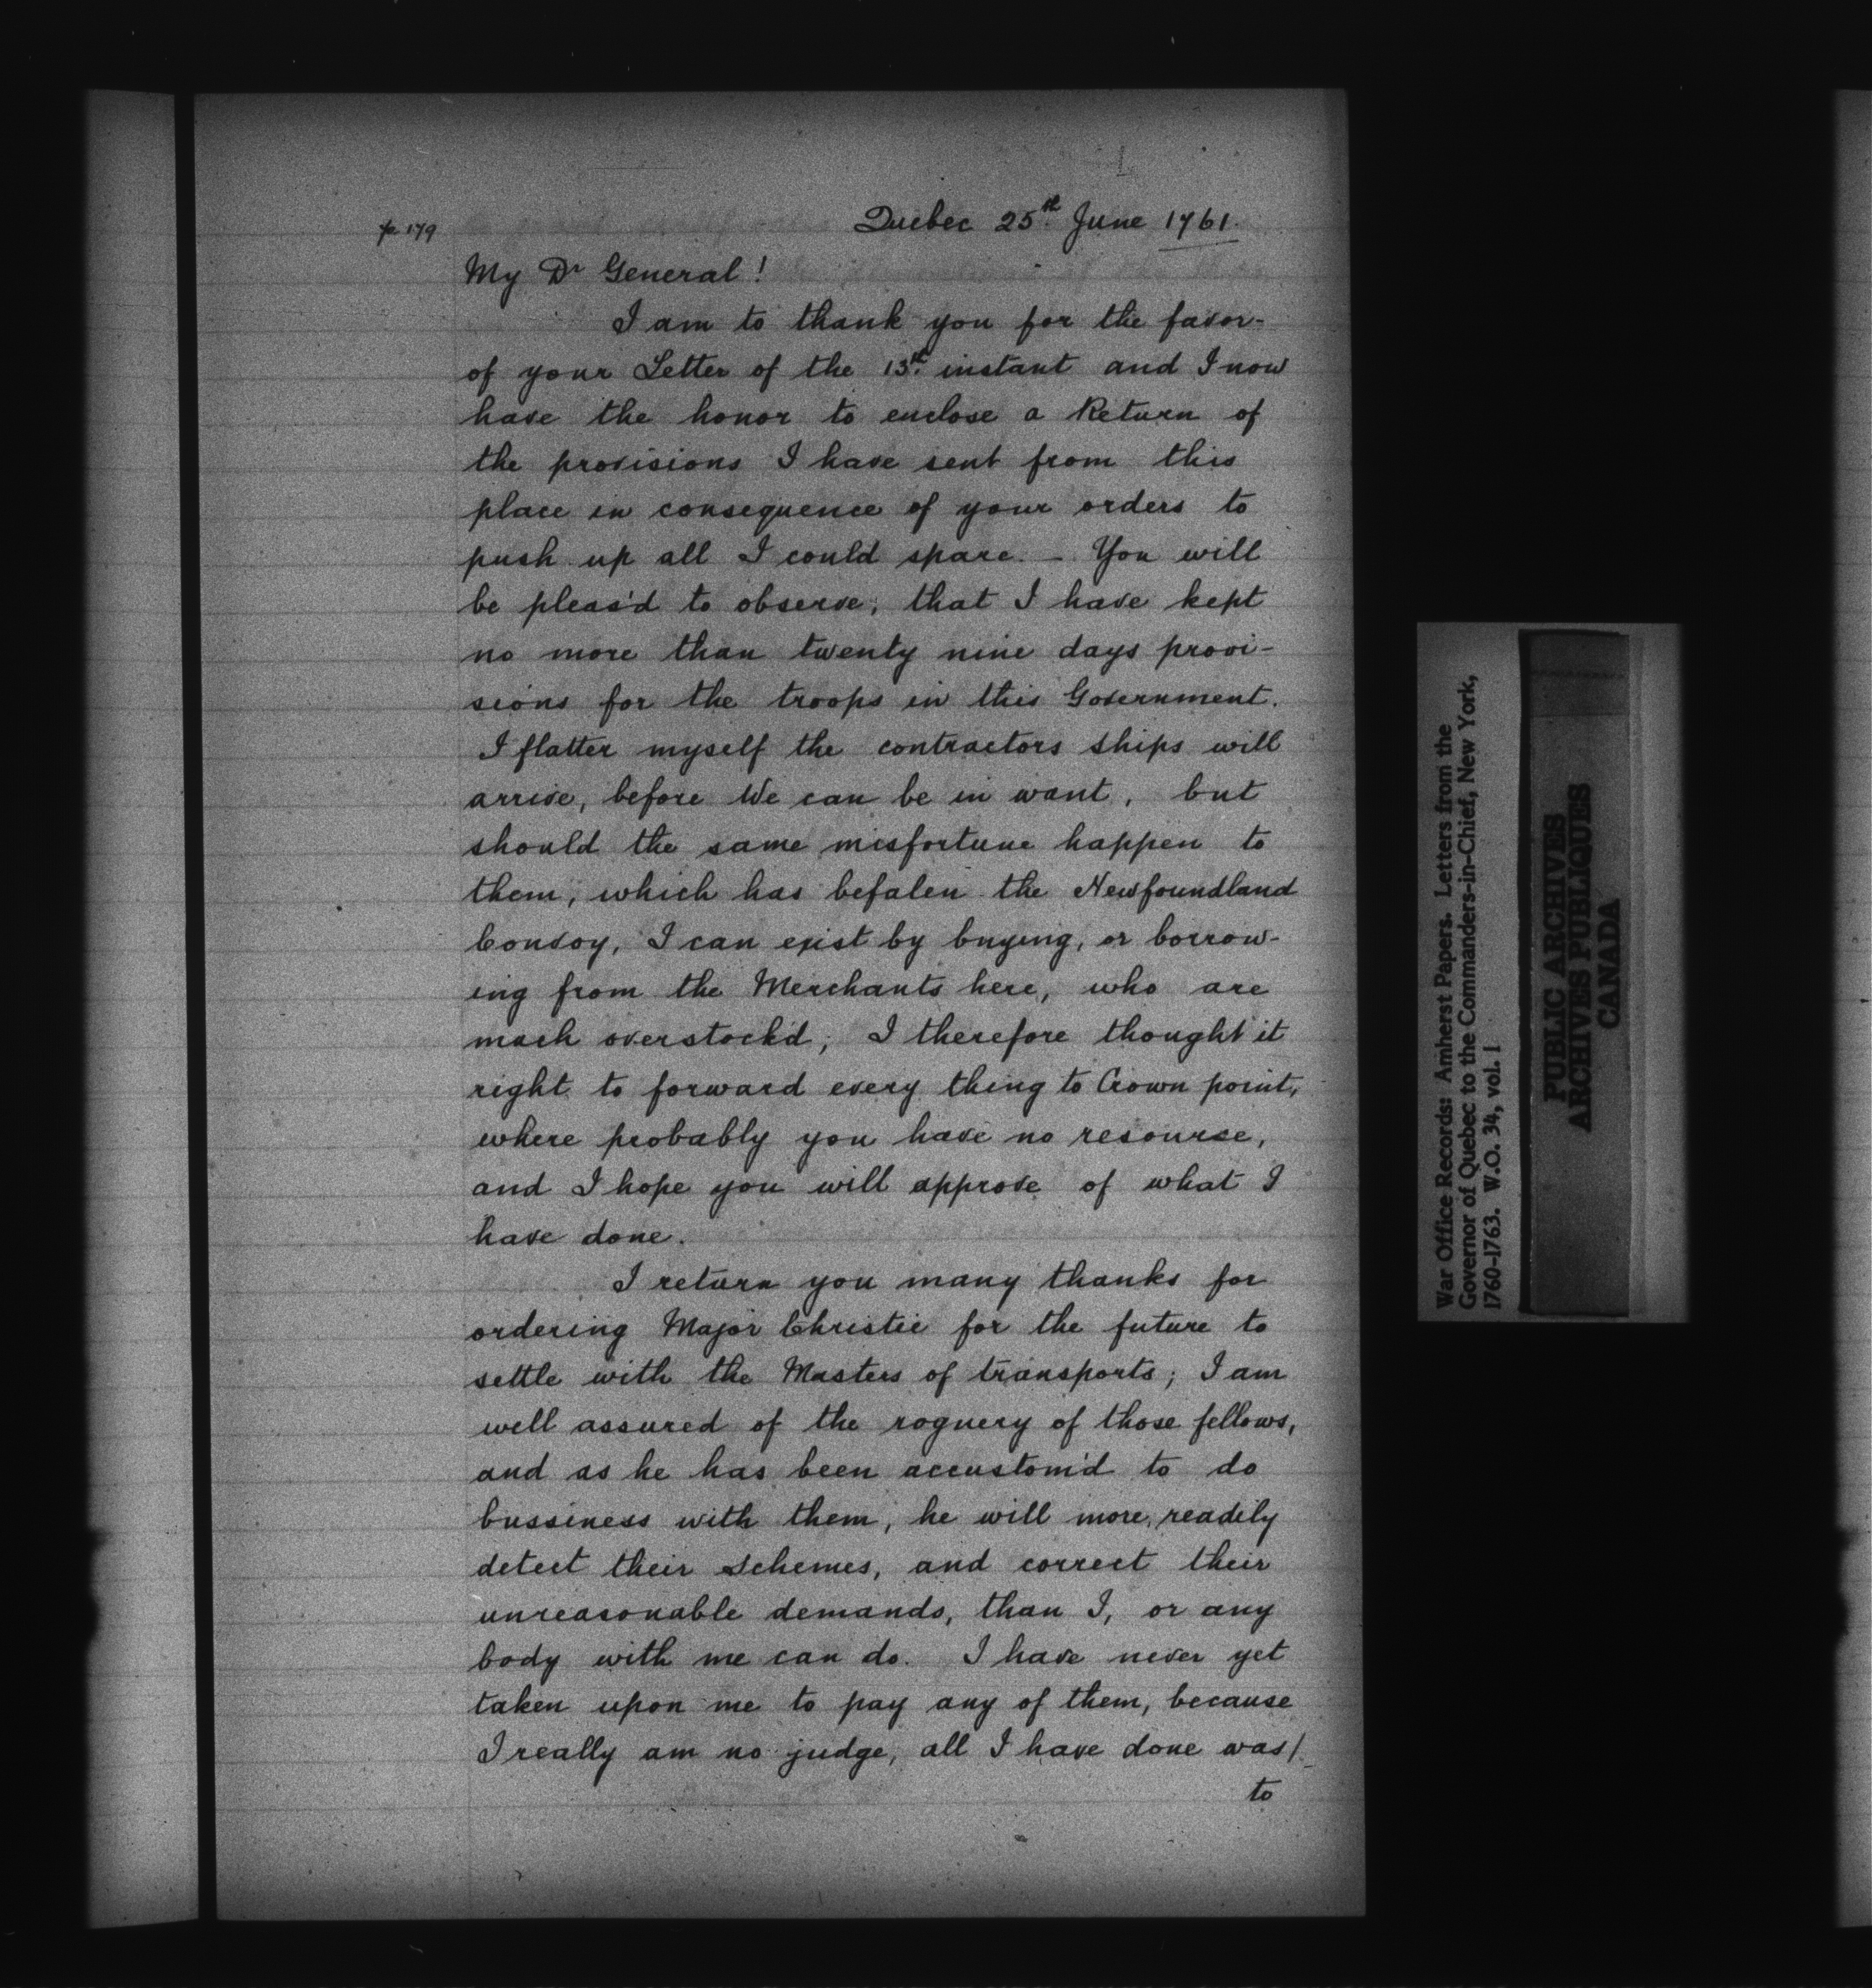 p. 179
Quebec 25th June 1761.
My Dr General!
I am to thank you for the favor-
of your Letter of the 13th instant and I now
have the honor to enclose a Return of
the provisions I have sent from this
place in consequence of your orders to
push up all I could spare. — You will
be pleas'd to observe, that I have kept
no more than twenty nine days provi-
sions for the troops in this Government.
I flatter myself the contractors ships will
arrive, before We can be in want, but
should the same misfortune happen to
them, which has befalen the Newfoundland
Convoy, I can exist by buying, or borrow-
ing from the Merchants here, who are
much overstock'd; I therefore thought it
right to forward every thing to Crown point,
where probably you have no resource,
and I hope you will approve of what I
have done.
I return you many thanks for
ordering Major Christie for the future to
settle with the Masters of transports; I am
well assured of the roguery of those fellows,
and as he has been accustom'd to do
bussiness with them, he will more readily
detect their schemes, and correct their
unreasonable demands, than I, or any
body with me can do. I have never yet
taken upon me to pay any of them, because
I really am no judge, all I have done was/
to
War Office Records: Amherst Papers. Letters from the
Governor of Quebec to the Commanders-in-Chief, New York,
1760-1763. W.O. 34, vol. 1
PUBLIC ARCHIVES
ARCHIVES PUBLIQUES
CANADA